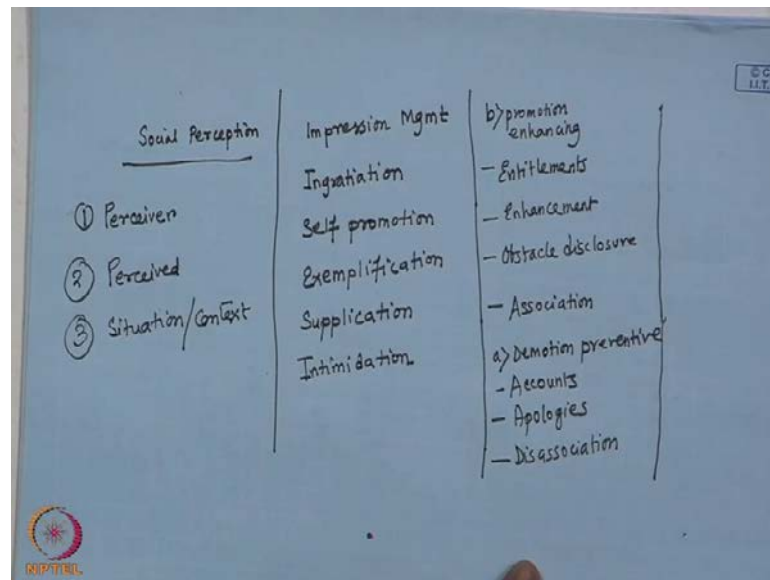 Social Perception
① Perceiver
② Perceived
③ Situation/Context
Impression Mgmt
Ingratiation
Self promotion
Exemplification
Supplication
Intimidation
b) promotion
enhancing
- Entitlements
- Enhancement
- Obstacle disclosure
- Association
a) Demotion preventive
- Accounts
- Apologies
- Disassociation
© C
I.I.T.
NPTEL